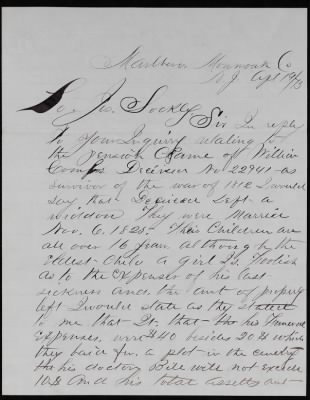 Marlboro Monmouth Co
N.J. Apl 19/73
To Jas. Lockey Sir In reply
to Your Inquiry relating to
the Pension Claim of William
Combs Deceiesn No 22941 as
survivor of the war of 1812 I would
say that Deceiesed Left a
widdow They were Married
Nov. 6. 1825. Their Children are
all over 16 years although the
oldest Child a girl Is Foolish
as to the Expenses of his last
sickness and the amt of property
left I would state as they stated
to me that It that his Funeral
Expenses were $40 besides 20 $ which
they paid for a plot in the cemetry
his doctors Bill will not Exceed
10 $ and his total assetts amt